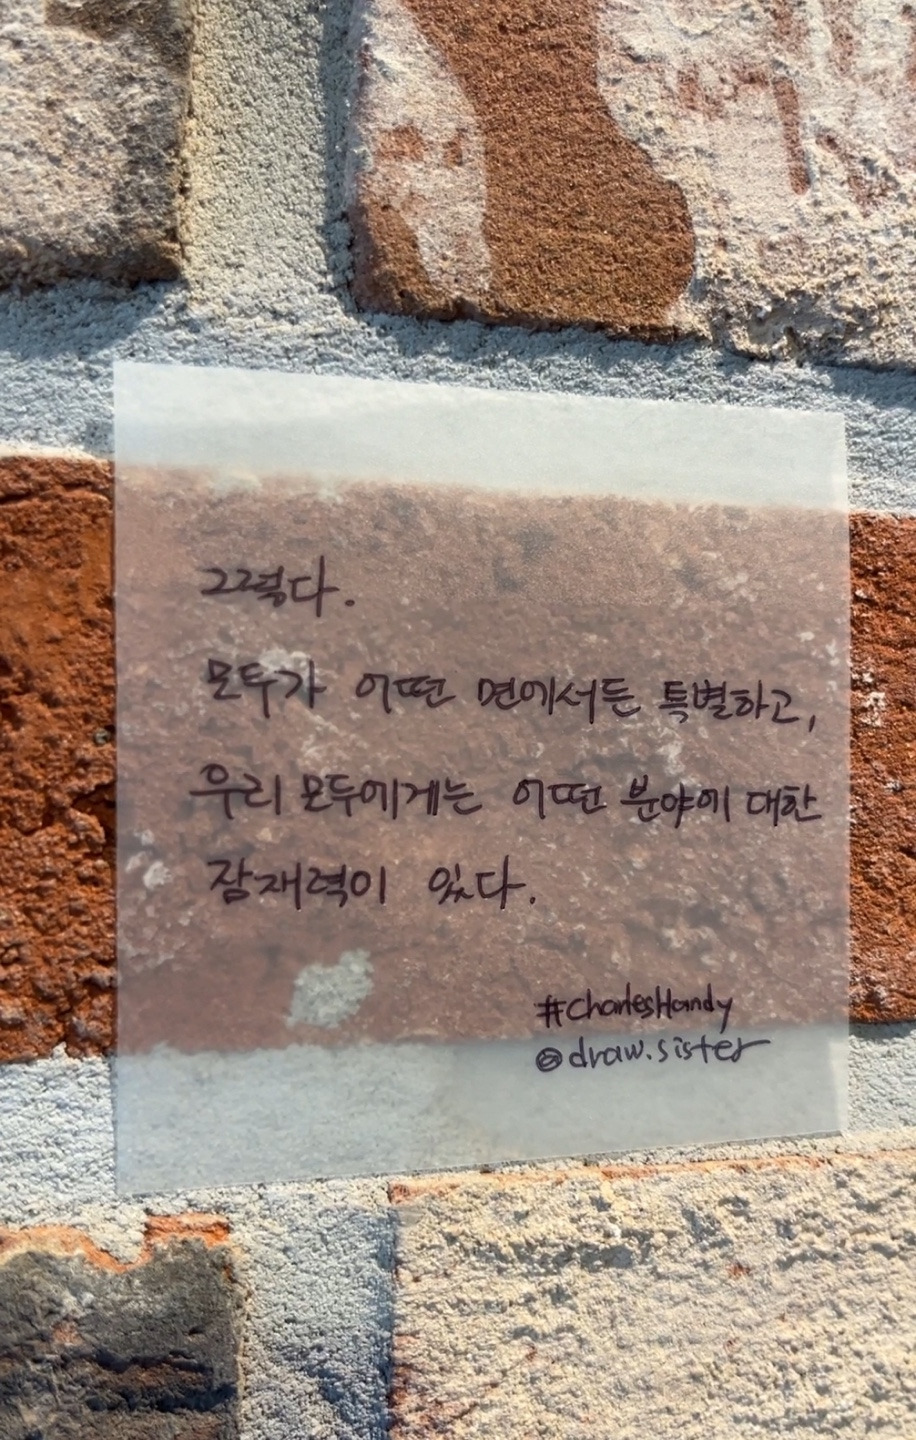 그렇다.
모두가 어떤 면에서든 특별하고,
우리 모두에게는 어떤 분야에 대한
잠재력이 있다.
#CharlesHandy
@draw.sister